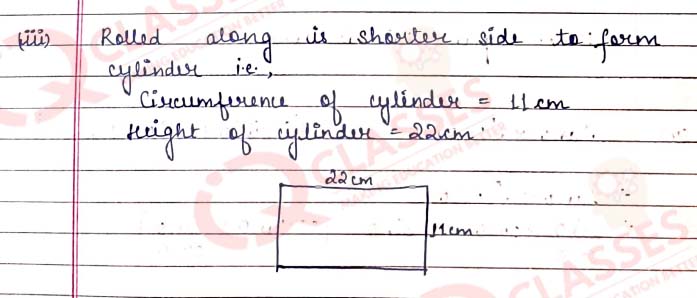 (iii) Rolled along is shorter side to form
cylinder i.e.,
Circumference of cylinder = 11 cm
Height of cylinder = 22cm
22cm
11cm
CLASSES
MAKING EDUCATION BETTER
CLASSES